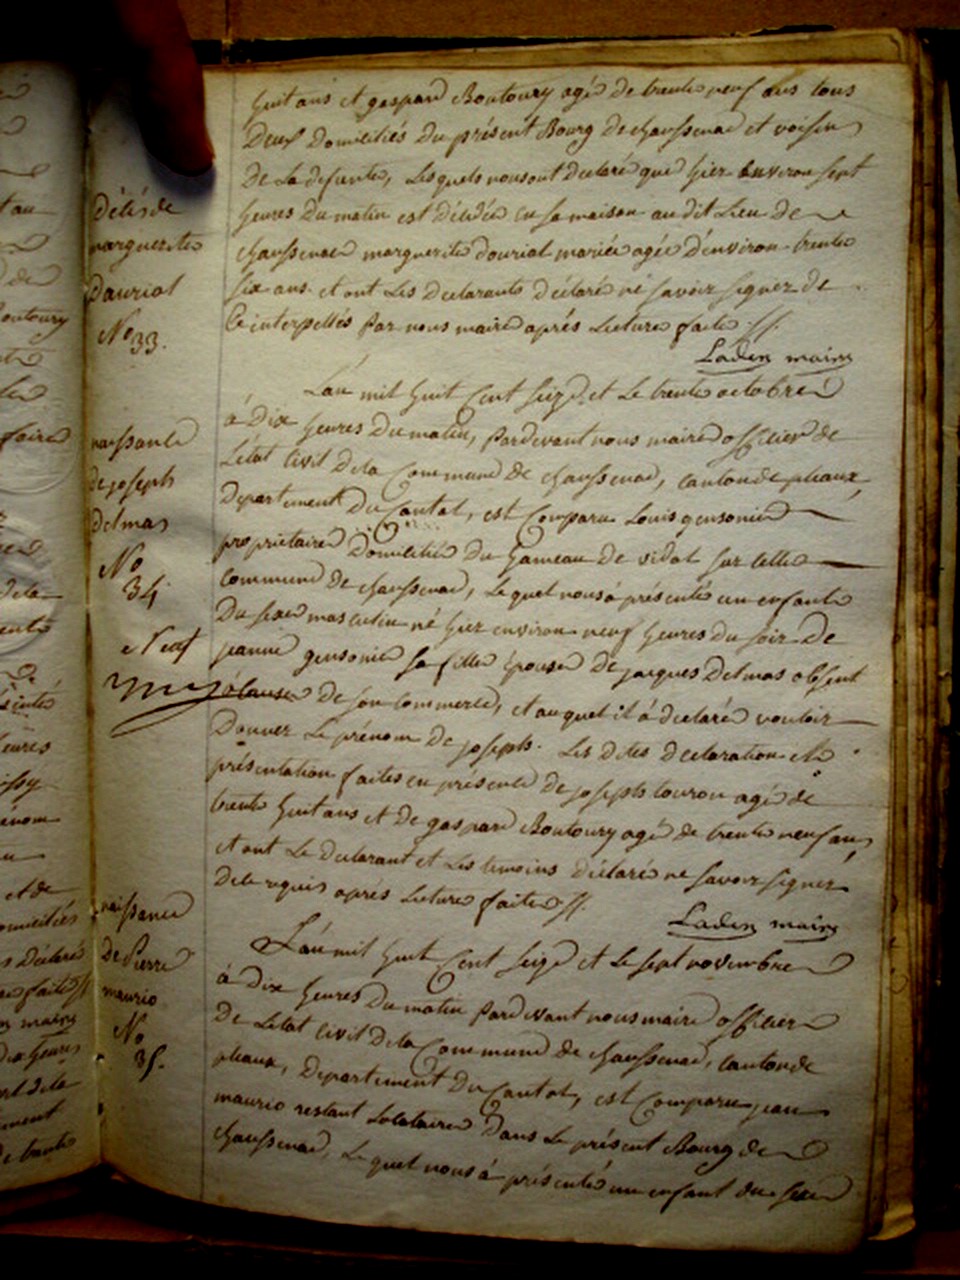 huit ans et gaspard Boutoury agé de trente neuf ans tous
Deux Domiciliés du présent Bourg de chaussenac et voisin
de La defunte, Lesquels nous ont declaré que hier environ sept
heures Du matin est décédée en sa maison au dit Lieu de
Décés de
chaussenac marguerite douriat mariée agée d'environ trente
marguerite
six ans. et ont Les Declarants déclaré ne savoir signer de
Dauriat
Ce interpellés Par nous maire aprés Lecture faite //.
No 33.
Laden maire
L'an mil huit Cent seize et Le trente octobre
à Dix heures Du matin, Pardevant nous maire officier de
naissance
L'état Civil De la Commune de chaussenac, canton de pleaux,
de joseph
Departement Du Cantal, est Comparu Louis gensonie
Delmas
propriétaire Domicilié du hameau de vidal sur cette
No
34
commune de chaussenac, Lequel nous à présenté un enfant
Du sexe masculin né hier environ neuf heures du soir de
jeanne gensonie sa fille épouse de jacques Delmas absent
à cause de son commerce, et auquel il à declaré vouloir
Donner Le prénom de joseph. Les Dites declaration et
présentation faites en présence de joseph touron agé de
trente huit ans et de gaspard Boutoury agé de trente neuf ans,
et ont Le declarant et Les temoins déclaré ne savoir signer
de ce requis aprés Lecture faite //.
Laden maire
naissance
L'an mil huit Cent seize et Le sept novembre
De Pierre
à Dix heures Du matin Pardevant nous maire officier
maurio
De L'etat Civil De la Commune de chaussenac, canton de
No
35.
pleaux, Departement Du Cantal, est Comparu jean
maurio restant Locataire Dans Le présent Bourg de
chaussenac, Lequel nous à présenté un enfant du sexe